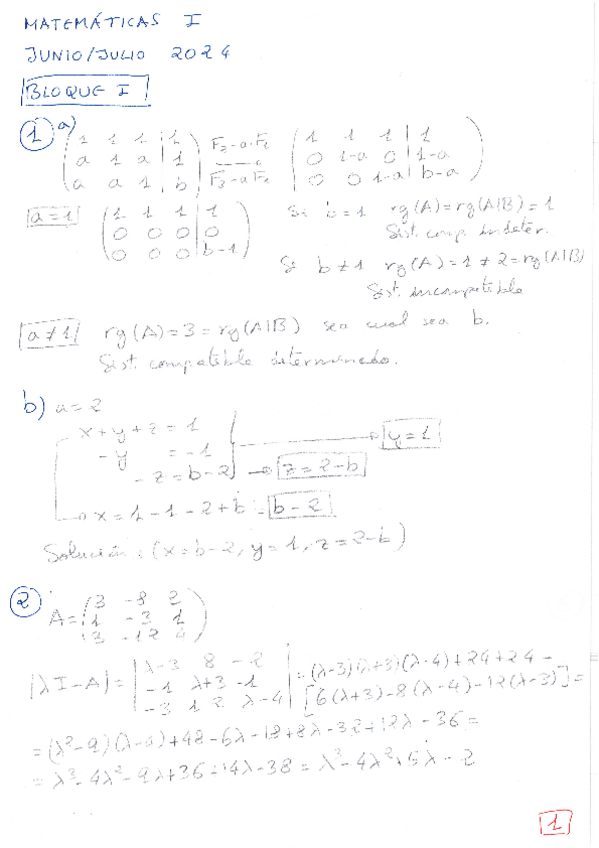 MATEMÁTICAS I
JUNIO/JULIO 2024
BLOQUE I
1 a) (1 1 1 | 1 F2-a·F1 (1 1 1 | 1
a 1 a | 1 0 1-a 0 | 1-a
a a 1 | b) F3-aF1 0 0 1-a | b-a)
a=1 (1 1 1 | 1 Si b=1 rg(A)=rg(A|B)=1
0 0 0 | 0 Sist. comp. indeter.
0 0 0 | b-1) Si b≠1 rg(A)=1≠2=rg(A|B)
Sist. incompatible
a≠1 rg(A)=3=rg(A|B) sea cual sea b.
Sist. compatible determinado.
b) a=2
x+y+z=1
-y =-1 → y=1
-z=b-2 → z=2-b
x=1-1-2+b=b-2
Solución: (x=b-2, y=1, z=2-b)
2 A=(3 -8 2
1 -3 1
3 -12 4)
|λI-A|=|λ-3 8 -2
-1 λ+3 -1
-3 12 λ-4| =(λ-3)(λ+3)(λ-4)+24+24-
[6(λ+3)-8(λ-4)-12(λ-3)]=
=(λ²-9)(λ-4)+48-6λ-18+8λ-32+12λ-36=
=λ³-4λ²-9λ+36+14λ-38=λ³-4λ²+5λ-2
1